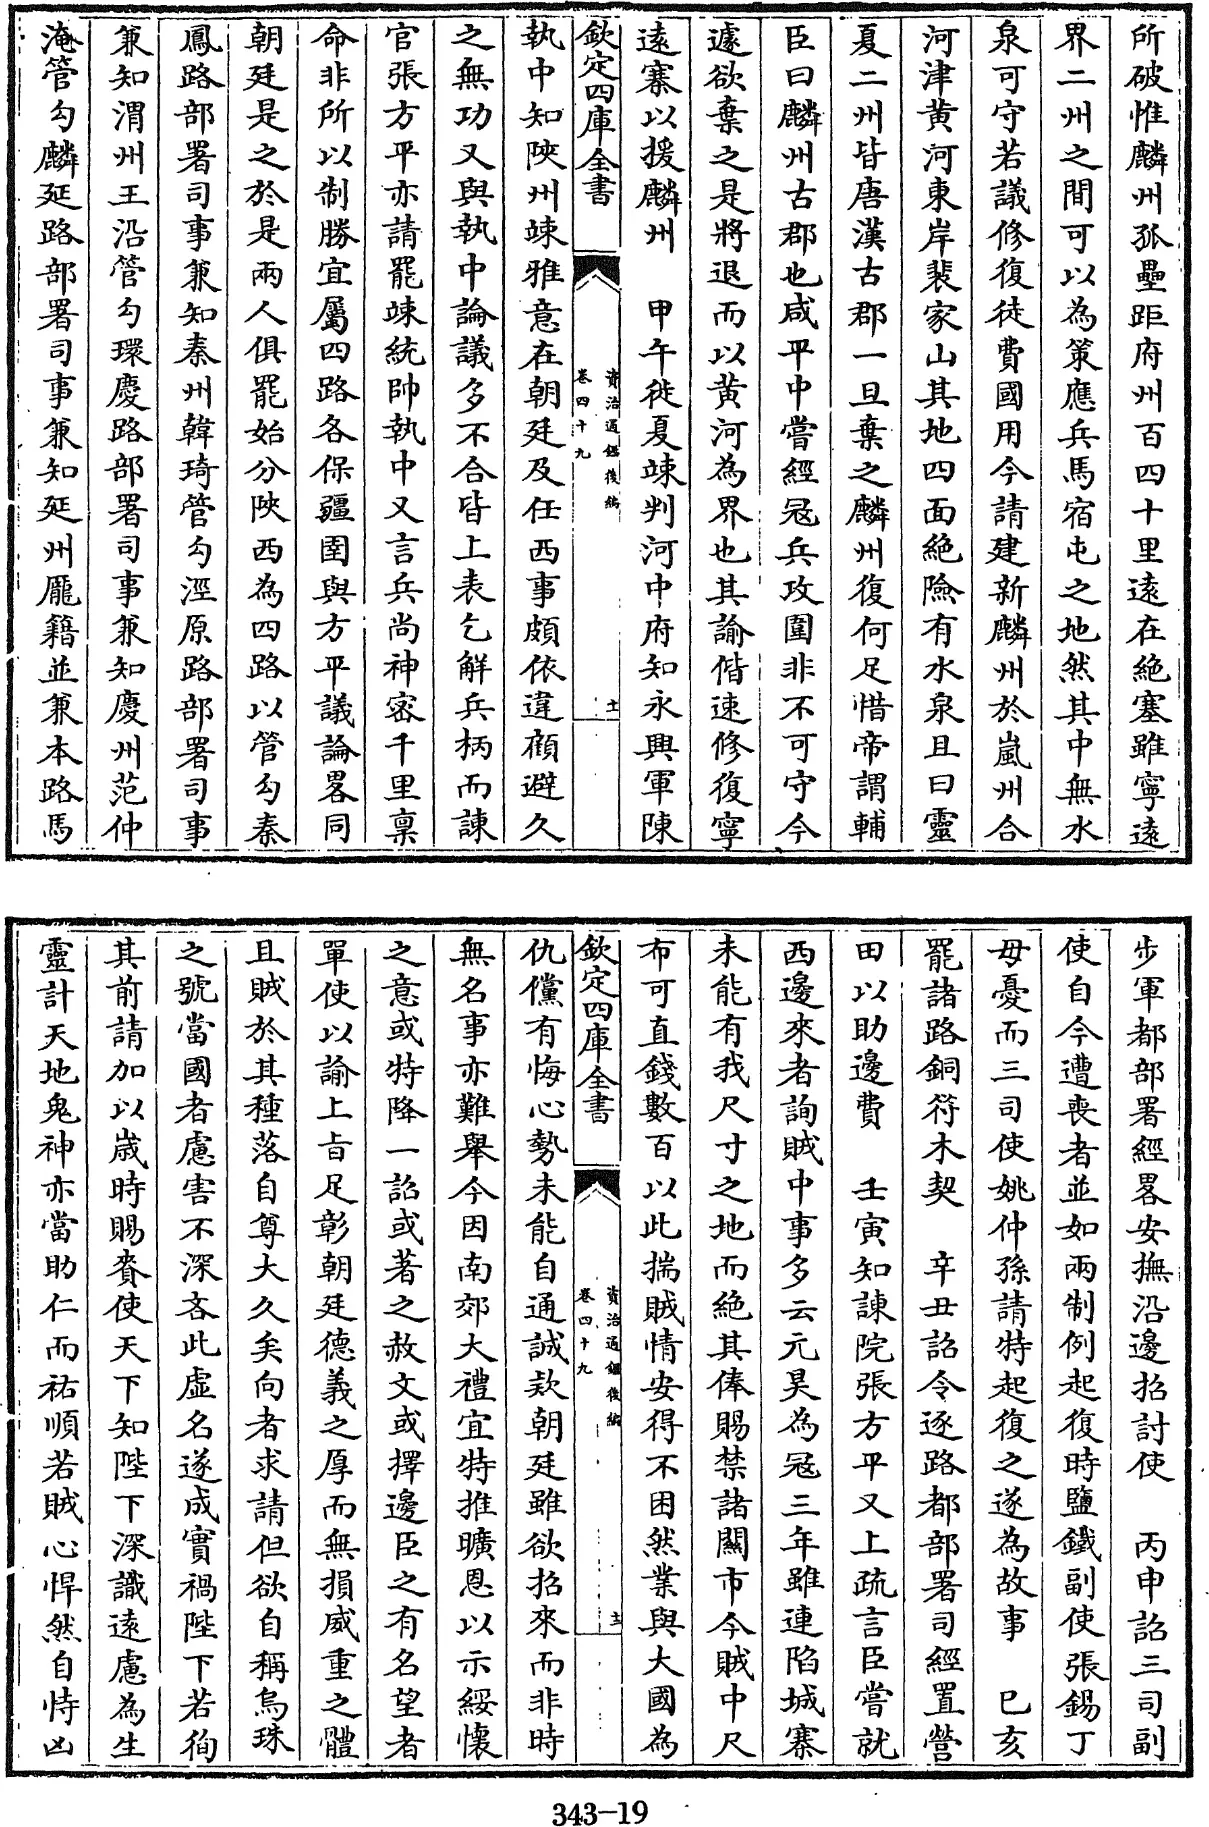 所破惟麟州孤壘距府州百四十里遠在絶塞雖寧遠
界二州之間可以為策應兵馬宿屯之地然其中無水
泉可守若議修復徒費國用今請建新麟州於嵐州合
河津黄河東岸裴家山其地四面絶險有水泉且曰靈
夏二州皆唐漢古郡一旦棄之麟州復何足惜帝謂輔
臣曰麟州古郡也咸平中嘗經冦兵攻圍非不可守今
遽欲棄之是將退而以黄河為界也其諭偕速修復寧
遠寨以援麟州　甲午徙夏竦判河中府知永興軍陳
欽定四庫全書
資治通鑑後編
卷四十九
十
執中知陜州竦雅意在朝廷及任西事頗依違顧避久
之無功又與執中論議多不合皆上表乞解兵柄而諫
官張方平亦請罷竦統帥執中又言兵尚神密千里禀
命非所以制勝宜屬四路各保疆圉與方平議論畧同
朝廷是之於是兩人俱罷始分陜西為四路以管勾秦
鳳路部署司事兼知秦州韓琦管勾涇原路部署司事
兼知渭州王沿管勾環慶路部署司事兼知慶州范仲
淹管勾麟延路部署司事兼知延州龎籍並兼本路馬
步軍都部署經畧安撫沿邊招討使　丙申詔三司副
使自今遭喪者並如兩制例起復時鹽鐵副使張錫丁
母憂而三司使姚仲孫請特起復之遂為故事　已亥
罷諸路銅符木契　辛丑詔令逐路都部署司經置營
田以助邊費　壬寅知諫院張方平又上疏言臣嘗就
西邊來者詢賊中事多云元昊為冦三年雖連陷城寨
未能有我尺寸之地而絶其俸賜禁諸關市今賊中尺
布可直錢數百以此揣賊情安得不困然業與大國為
欽定四庫全書
資治通鑑後編
卷四十九
十一
仇儻有悔心勢未能自通誠欵朝廷雖欲招來而非時
無名事亦難舉今因南郊大禮宜特推曠恩以示綏懷
之意或特降一詔或著之赦文或擇邊臣之有名望者
單使以諭上旨足彰朝廷德義之厚而無損威重之體
且賊於其種落自尊大久矣向者求請但欲自稱烏珠
之號當國者慮害不深吝此虚名遂成實禍陛下若徇
其前請加以歲時賜賚使天下知陛下深識遠慮為生
靈計天地鬼神亦當助仁而祐順若賊心悍然自恃凶
343-19